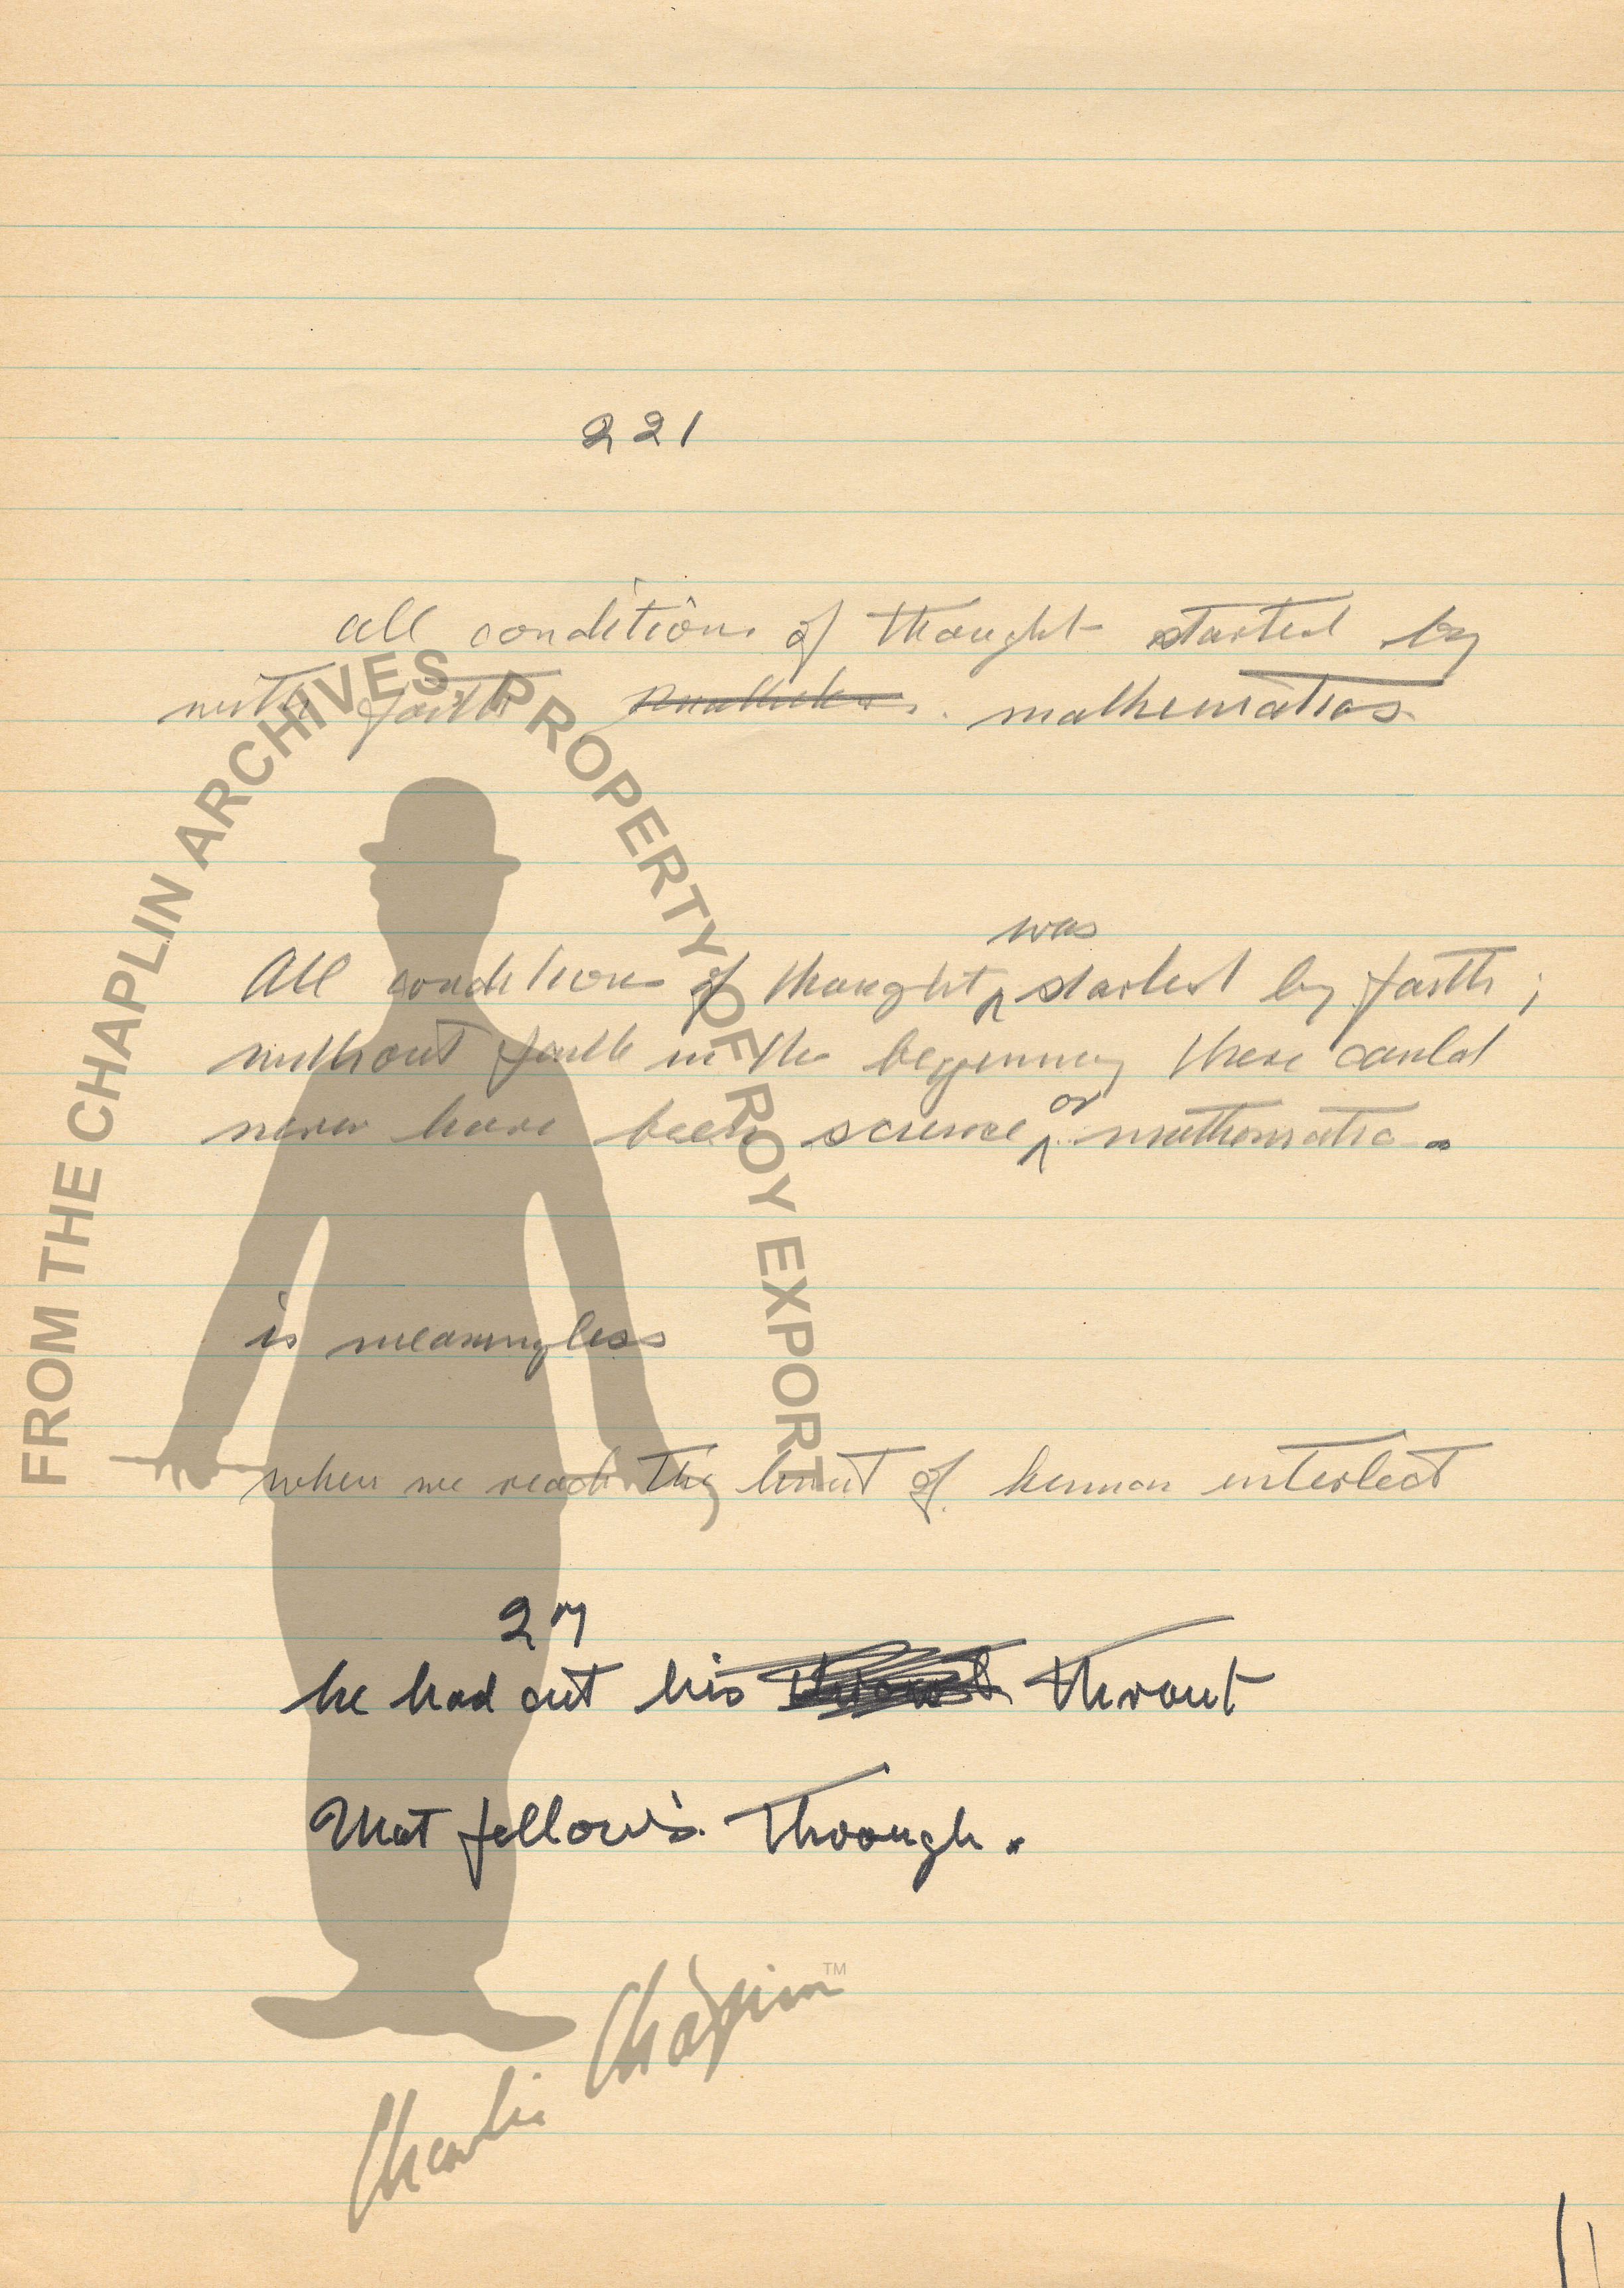 221
all conditions of thought started by
with faith mathematics
was
All conditions of thought started by faith;
without faith in the beginning there could
or
never have been science, mathematic.
is meaningless
when we reach the limit of human
27
he had cut his throut
that follow's through.
FROM THE CHAPLIN ARCHIVES. PROPERTY OF ROY EXPORT
Charlie Chaplin™